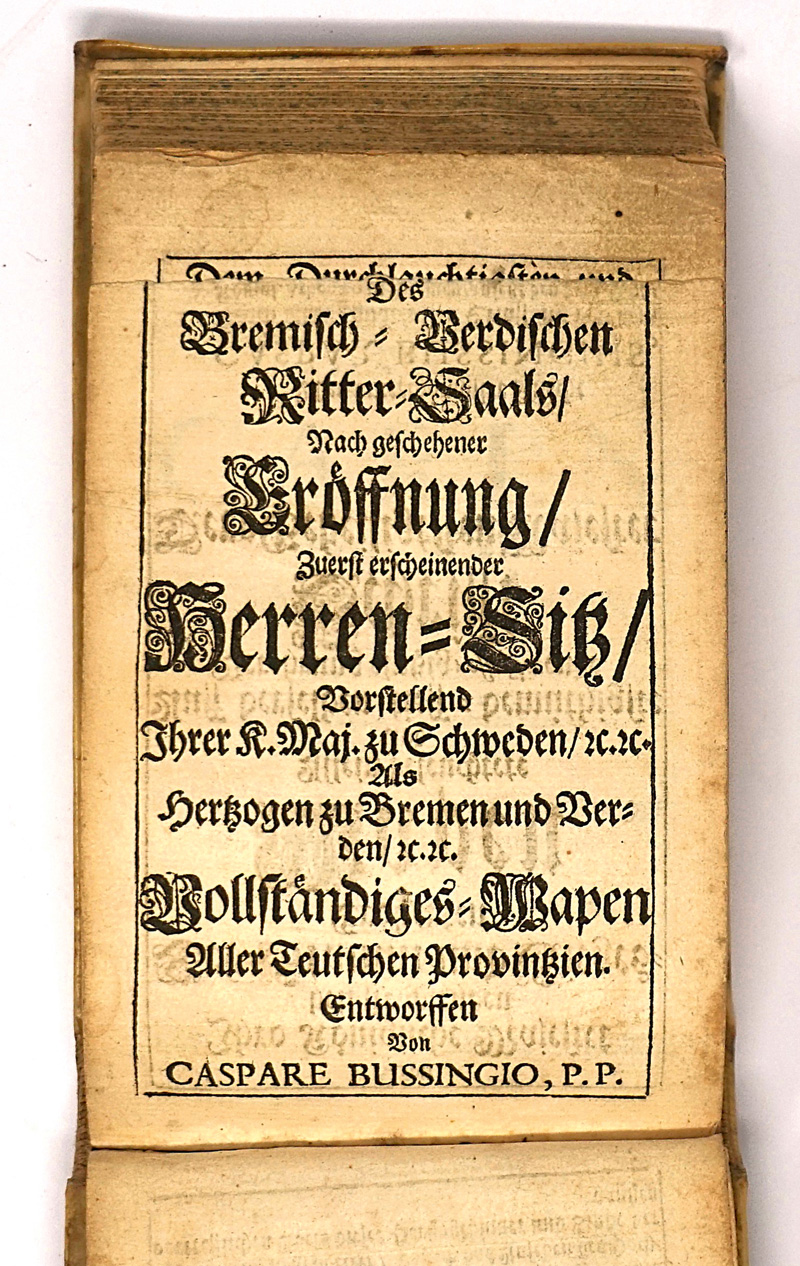 Dem Durchleuchtigsten und
Des
Bremisch- Verdischen
Ritter-Saals/
Nach geschehener
Eröffnung/
Zuerst erscheinender
Herren-Sitz/
Vorstellend
Ihrer K. Maj. zu Schweden/ ꝛc. ꝛc.
Als
Hertzogen zu Bremen und Ver-
den/ ꝛc. ꝛc.
Vollständiges-Wapen
Aller Teutschen Provintzien.
Entworffen
Von
CASPARE BUSSINGIO, P. P.